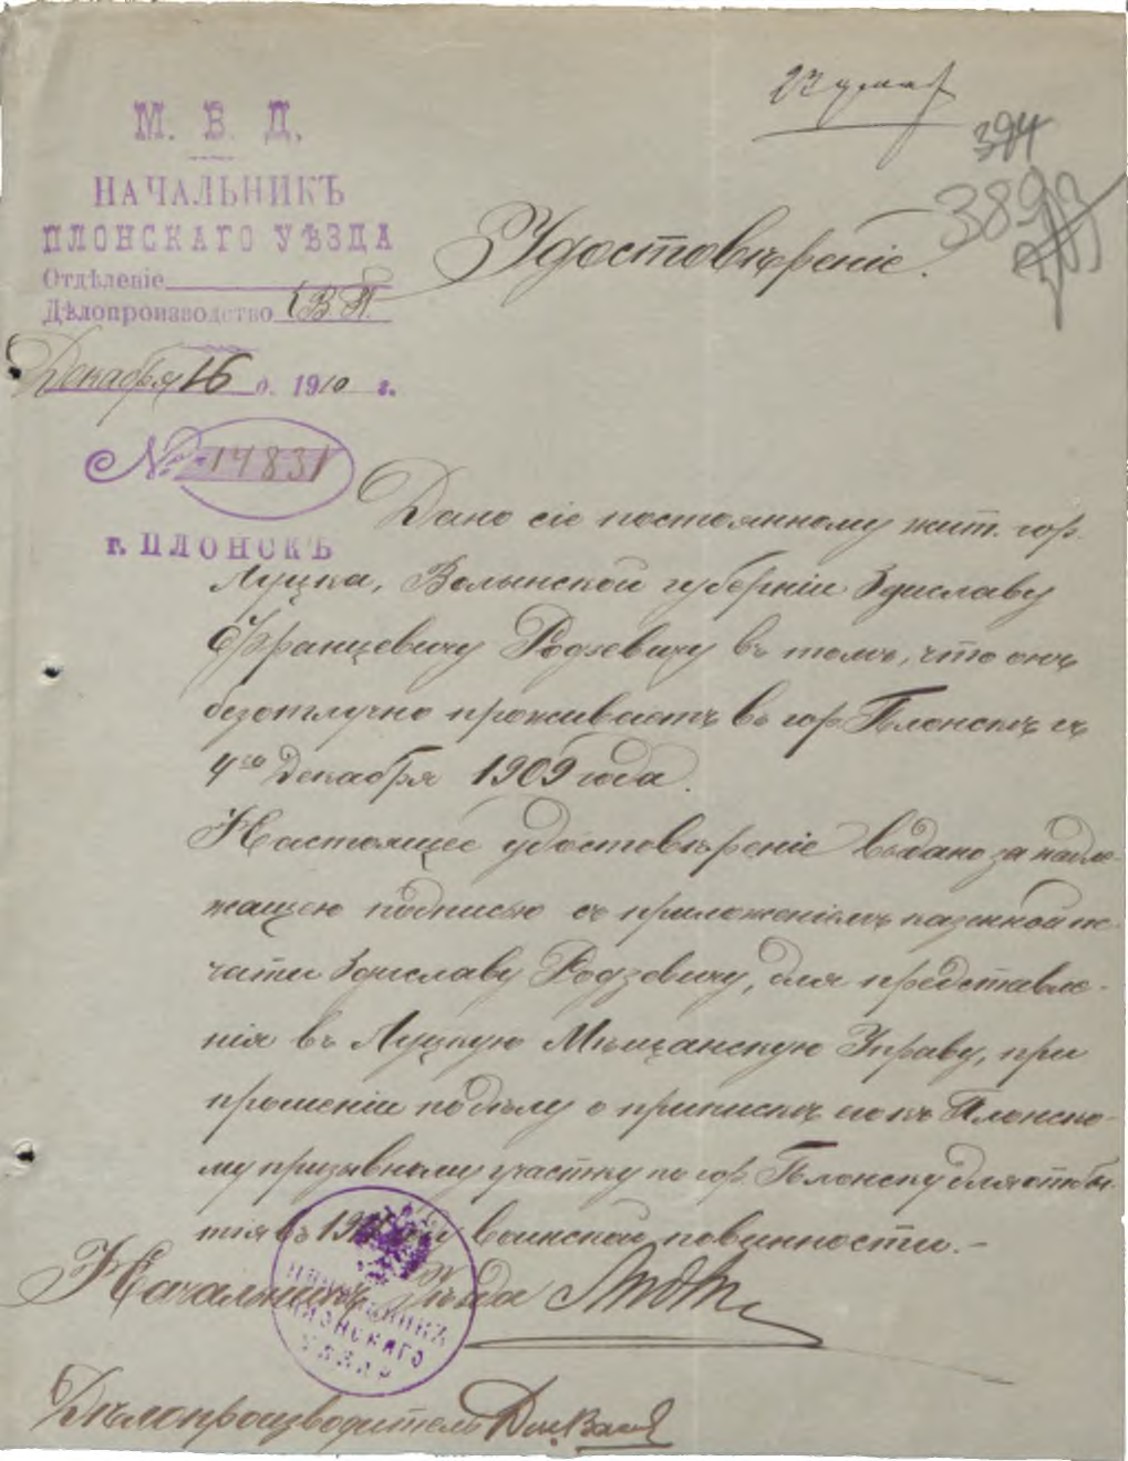 М. В. Д.
НАЧАЛЬНИКЪ
ПЛОНСКАГО УѢЗДА
Отдѣленіе
Дѣлопроизводство В П.
Декабря 16 д. 1910 г.
№ 14831
г. ПЛОНСКЪ
23
394
389
Удостовѣреніе.
Дано сіе постоянному жит. гор.
Луцка, Волынской губерніи Здиславу
Францевичу Родзевичу въ томъ, что онъ
безотлучно проживаетъ въ гор Плонскѣ съ
4го Декабря 1909 года.
Настоящее удостовѣреніе выдано за надле-
жащею подписью съ приложеніемъ казенной пе-
чати Здиславу Родзевичу, для представле-
нія въ Луцкую Мѣщанскую Управу, при
прошеніи по дѣлу о припискѣ его къ Плонско-
му призывному участку по гор. Плонску для отбы-
тія въ воинской повинности.-
Начальникъ Уѣзда
НАЧАЛЬНИКЪ
ПЛОНСКАГО
УѢЗДА
Дѣлопроизводитель